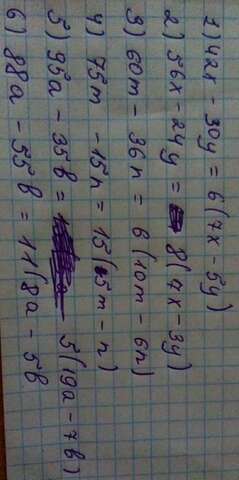 1) 42x - 30y = 6(7x - 5y)
2) 56x - 24y = 8(7x - 3y)
3) 60m - 36n = 6(10m - 6n)
4) 75m - 15n = 15(5m - n)
5) 95a - 35b = 5(19a - 7b)
6) 88a - 55b = 11(8a - 5b